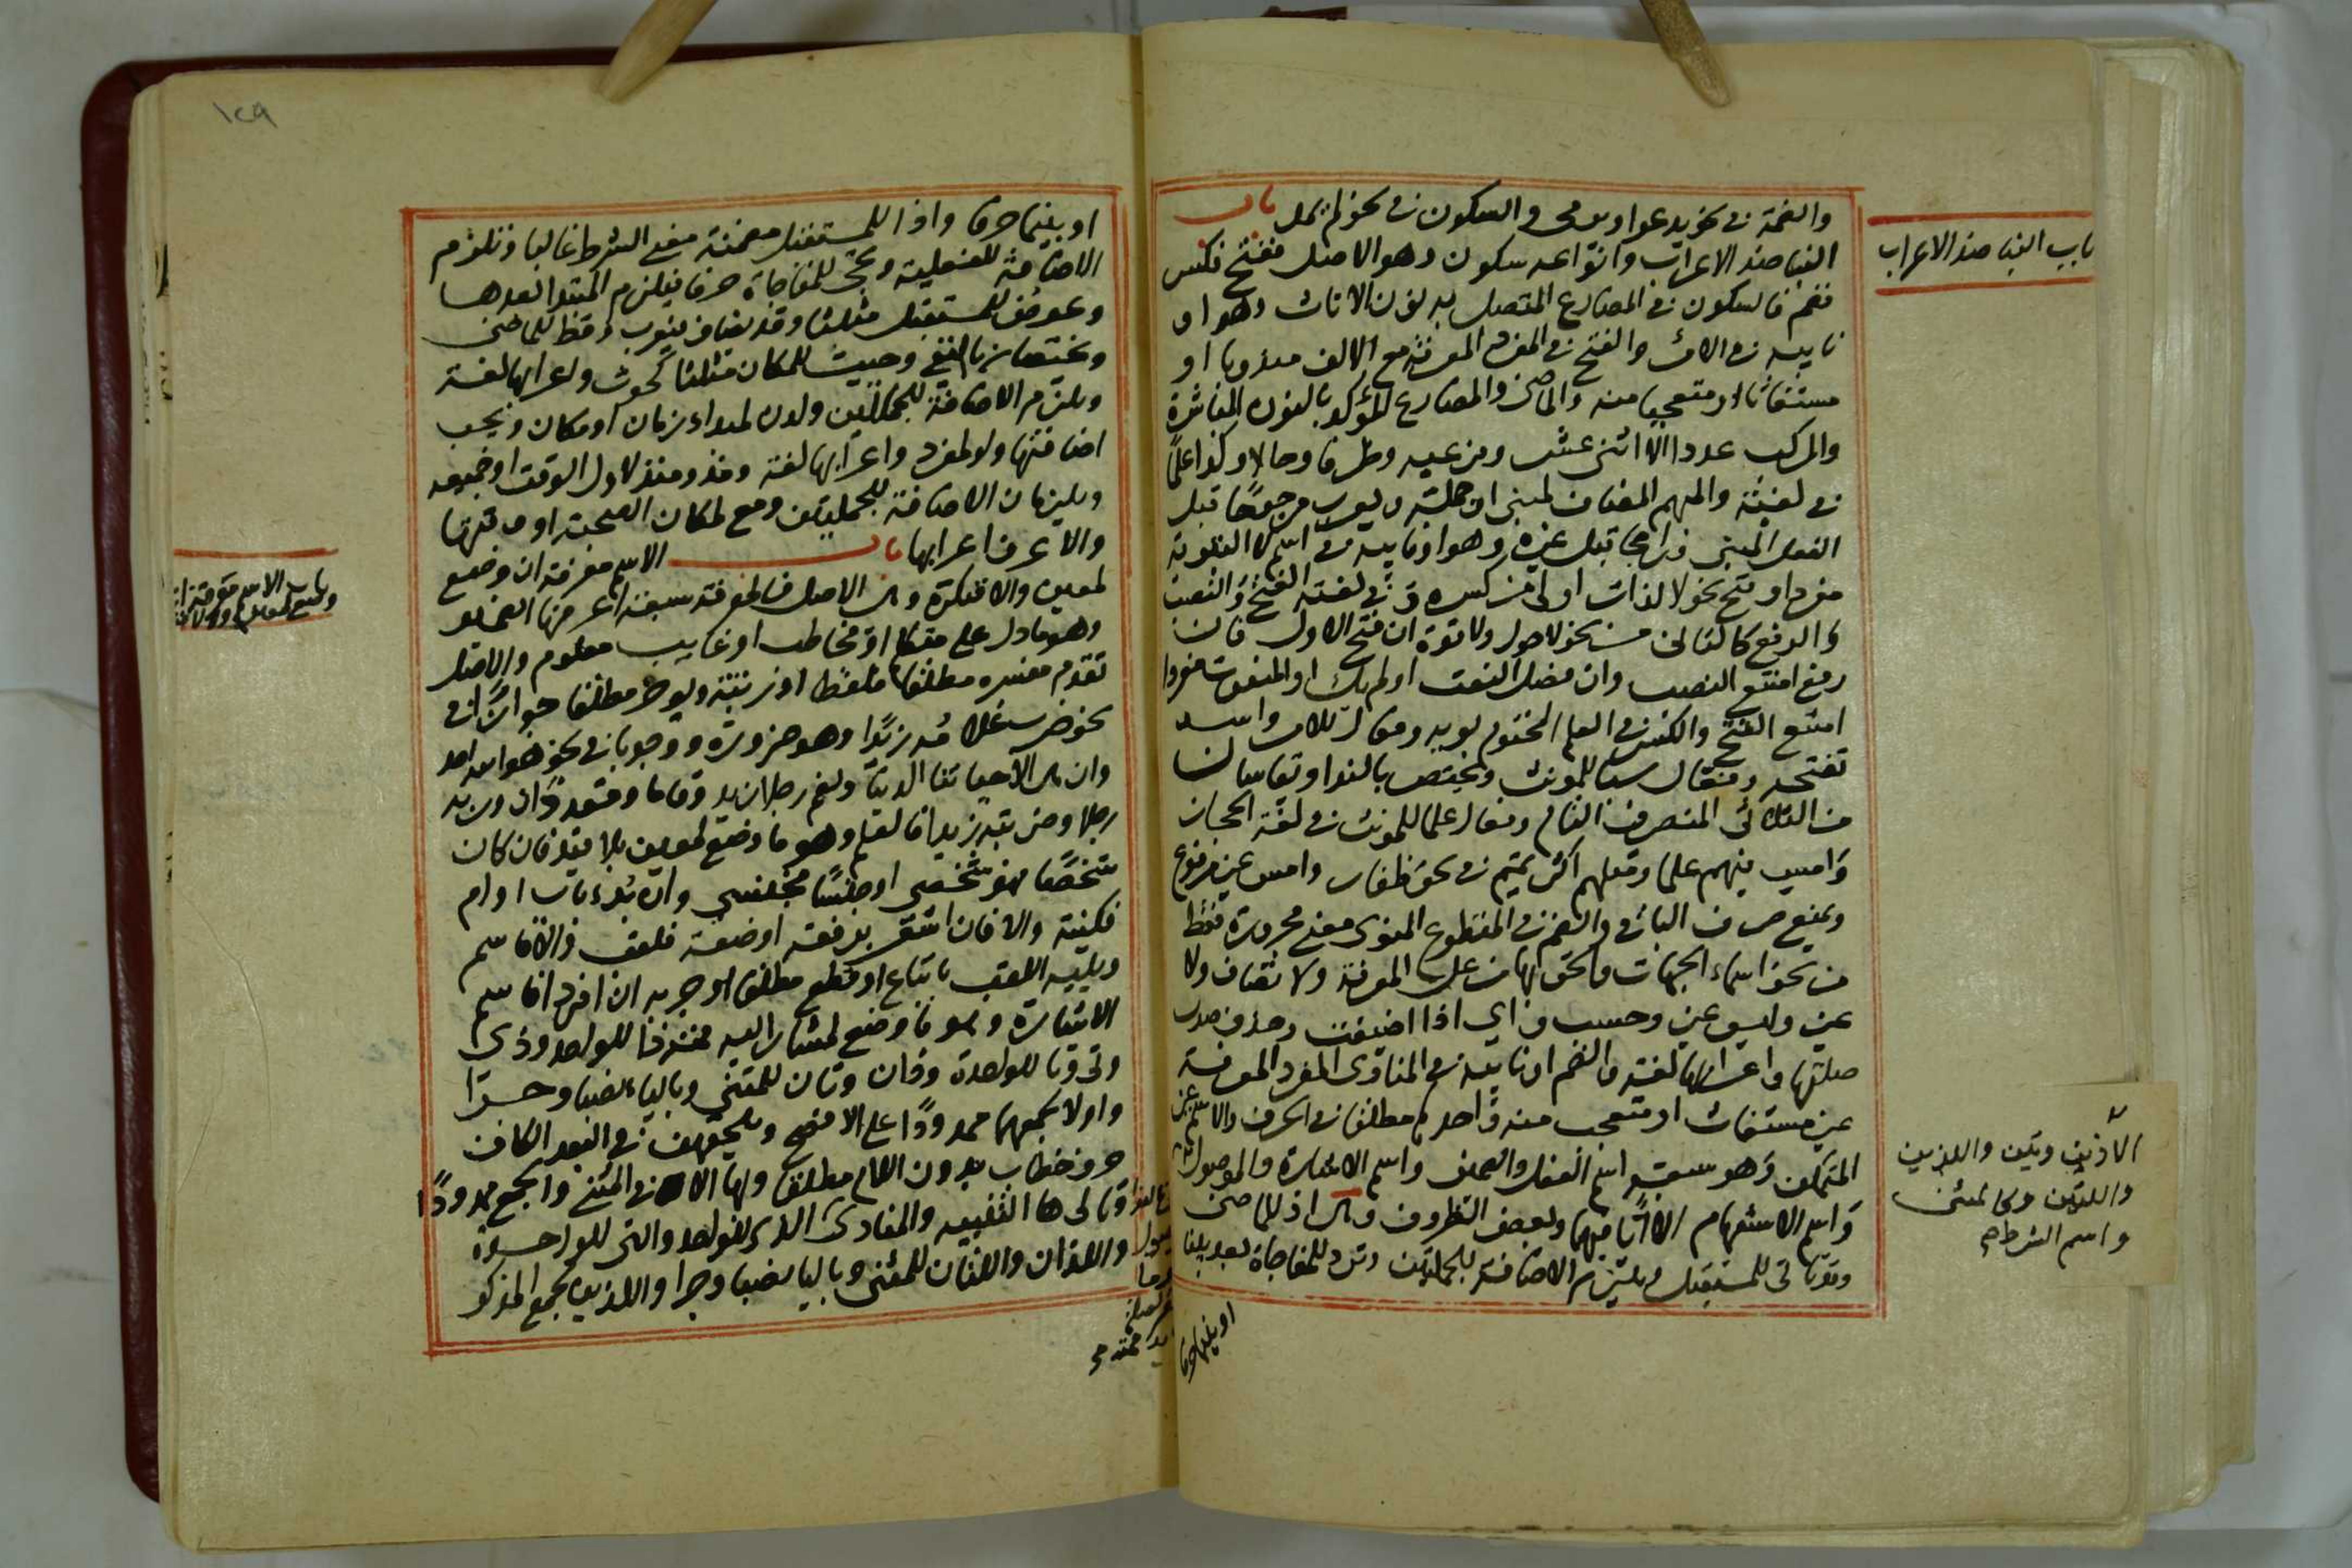 والضمة في نحو يدعو او يرمي والسكون في نحو لم يمل باب
البناء ضد الاعراب وانواعه سكون وهو الاصل ففتح فكسر
فضم فالسكون في المضارع المتصل به نون الاناث وهو او
نايبه في الامر والفتح في المفرد المعرفة مع الالف مندوبا او
مستغاثا او متعجبا منه والماضي والمضارع المؤكد بالنون المباشرة
والمركب عددا الا اثني عشر ومزجيه وظرفا وحالا وكذا علما
في لغية والمبهم المضاف لمبني او جملة ويعرب مرجوحا قبل
الفعل المبني وراجحا قبل غيره وهو او نايبه في اسم لا النافية
مفردا وفتح نحو لا لذات اولى من كسره وفي لغته الفتح والنصب
والرفع كالثاني من نحو لا حول ولا قوة ان فتح الاول فان
رفع امتنع النصب وان فصل النعت او لم يك او المنعوت مفردا
امتنع الفتح والكسر في العلم المختوم بويه وفعال للامر واسد
تفتحه وفعال سبا للمونث ويختص بالندا ويقاسان
من الثلاثي المتصرف التام وفعال علما للمونث في لغة الحجاز
وامس عندهم علما وفعلهم اكثر تميم في نحو ظفار وامس غير مرفوع
ويمنع صرف الباقي والضم في المقطوع المنوي معنى مجروره فقط
من نحو اسماء الجهات والحق بها من عل المعرفة ولا تضاف ولا
غير وليس غير وحسب واي اذا اضيفت وحذف صدر
صلتها واعرابها لغة والضم او نايبه في المنادى المفرد المعرفة
غير مستغاث او متعجب منه واحدهم مطلقا في الحرف والاسم غير
المتمكن وهو سبعة اسم الفعل والضمير واسم الاشارة والموصول
واسم الاستفهام الا ايا فيهما وبعض الظروف وهي اذ للماضي
وقد تاتي للمستقبل ويلتزم الاضافة للجملتين وترد للمفاجاة بعد بينا
او بينما حرفا
باب البناء ضد الاعراب
الا ذين وتين واللذين
واللتين وكالمثنى
واسم الشرط
١٢٩
او بينما حرفا واذا للمستقبل مضمنة معنى الشرط غالبا وتلزم
الاضافة للفعلية وتجي للمفاجاة حرفا فيلزم المبتدا بعدها
وعوض للمستقبل مثلثا وقد يضاف فيعرب وقط للماضي
ويختصان بالنفي وحيث للمكان مثلثا كحوث واعرابها لغة
ويلزم الاضافة للجملتين ولدن لمبداء زمان او مكان ويجب
اضافتها ولو لمفرد واعرابها لغة ومذ ومنذ لاول الوقت او جميعه
ويلزمان الاضافة للجملتين ومع لمكان الصحبة او وقتها
والاعرف اعرابها باب الاسم معرفة ان وضع
لمعين والا فنكرة وهي الاصل فالمعرفة سبعة اعرفها الضمير
وهو ما دل على متكلم او مخاطب او غايب معلوم والاصل
تقدم مفسره مطلقا لفظا او رتبة ويوخر مطلقا جوازا في
نحو ضرب غلامه زيدا وهو ضرورة ووجوبا في نحو هو الله احد
وان هي الا حياتنا الدنيا ونعم رجلا زيد وقاما وقعد اخواك وربه
رجلا وضربته زيدا فالعلم وهو ما وضع لمعين بلا قيد فان كان
شخصا فهو شخصي او جنسا فجنسي وان بدء باب او ام
فكنية والا فان اشعر برفعة او ضعة فلقب والا فاسم
ويليه اللقب باتباع او قطع مطلقا او جر به ان افردا فاسم
الاشارة وهو ما وضع لمشار اليه فمنه ذا للواحد وذي
وتي وتا للواحدة وذان وتان للمثنى وبالياء نصبا وجرا
واولا لجمعهما ممدودا على الافصح ويلحقهن في البعد الكاف
حرف خطاب بدون اللام مطلقا وبها الا في المثنى والجمع ممدودا
وتالي ها التنبيه والمنادى الذي للواحد والتي للواحدة
واللذان واللتان للمثنى وبالياء نصبا وجرا والذين لجمع المذكر
باب الاسم معرفة ان